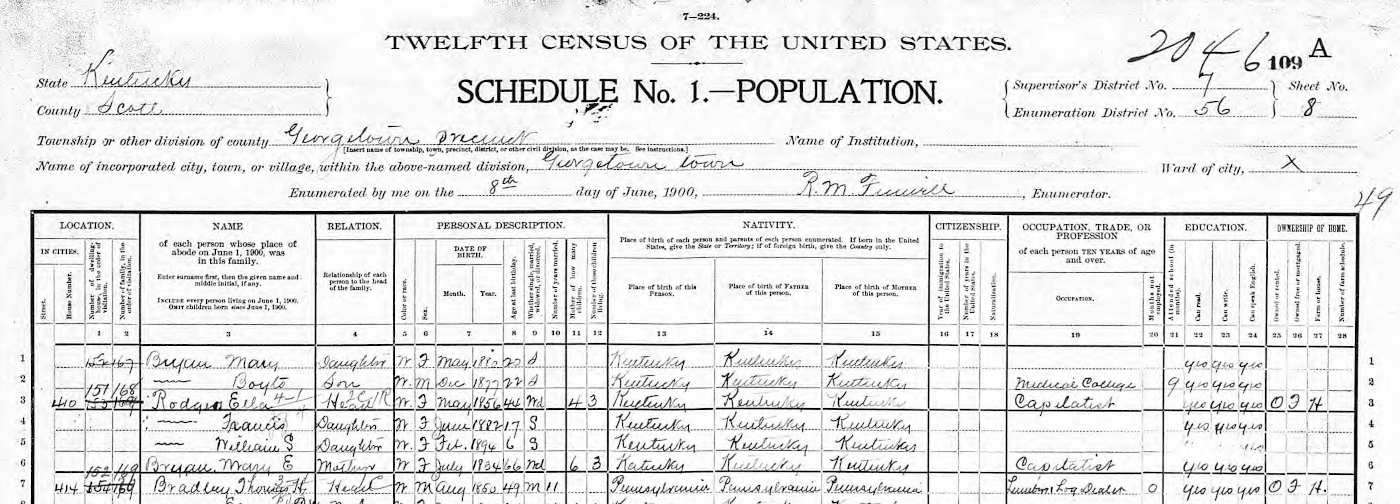 7—224.
TWELFTH CENSUS OF THE UNITED STATES.
2046 109 A
State Kentucky
County Scott
SCHEDULE No. 1.—POPULATION.
Supervisor's District No. 7 Sheet No.
Enumeration District No. 56 8
Township or other division of county Georgetown Precinct Name of Institution,
[Insert name of township, town, precinct, district, or other civil division, as the case may be. See instructions.]
Name of incorporated city, town, or village, within the above-named division, Georgetown town Ward of city, X
Enumerated by me on the 8th day of June, 1900, R. M. Enumerator.
49
LOCATION. NAME RELATION. PERSONAL DESCRIPTION. NATIVITY. CITIZENSHIP. OCCUPATION, TRADE, OR PROFESSION EDUCATION. OWNERSHIP OF HOME.
IN CITIES.
Street.
House Number.
Number of dwelling-house, in the order of visitation.
Number of family, in the order of visitation.
of each person whose place of abode on June 1, 1900, was in this family.
Enter surname first, then the given name and middle initial, if any.
INCLUDE every person living on June 1, 1900.
OMIT children born since June 1, 1900.
Relationship of each person to the head of the family.
Color or race.
Sex.
DATE OF BIRTH.
Month. Year.
Age at last birthday.
Whether single, married, widowed, or divorced.
Number of years married.
Mother of how many children.
Number of these children living.
Place of birth of each person and parents of each person enumerated. If born in the United States, give the State or Territory; if of foreign birth, give the Country only.
Place of birth of this PERSON.
Place of birth of FATHER of this person.
Place of birth of MOTHER of this person.
Year of immigration to the United States.
Number of years in the United States.
Naturalization.
of each person TEN YEARS of age and over.
OCCUPATION.
Months not employed.
Attended school (in months).
Can read.
Can write.
Can speak English.
Owned or rented.
Owned free or mortgaged.
Farm or house.
Number of farm schedule.
1 2 3 4 5 6 7 8 9 10 11 12 13 14 15 16 17 18 19 20 21 22 23 24 25 26 27 28
1 152 167 Bryan Mary Daughter W F May 22 S Kentucky Kentucky Kentucky yes yes yes 1
2 Son W M Dec 1877 22 S Kentucky Kentucky Kentucky Medical College 9 yes yes yes 2
151 168
3 410 Rodgers Ella Head W F May 1856 44 Wd 4 3 Kentucky Kentucky Kentucky Capitalist yes yes yes O F H 3
4 Francis Daughter W F June 1882 17 S Kentucky Kentucky Kentucky yes yes yes 4
5 William S Daughter W F Feb 1894 6 S Kentucky Kentucky Kentucky 5
6 Bryan, Mary E Mother W F July 1834 66 Wd 6 3 Kentucky Kentucky Kentucky Capitalist yes yes yes 6
152 169
7 414 Bradley Thomas H Head W M Aug 1850 49 M 11 Pennsylvania Pennsylvania Pennsylvania Log Dealer 0 yes yes yes O F H 7